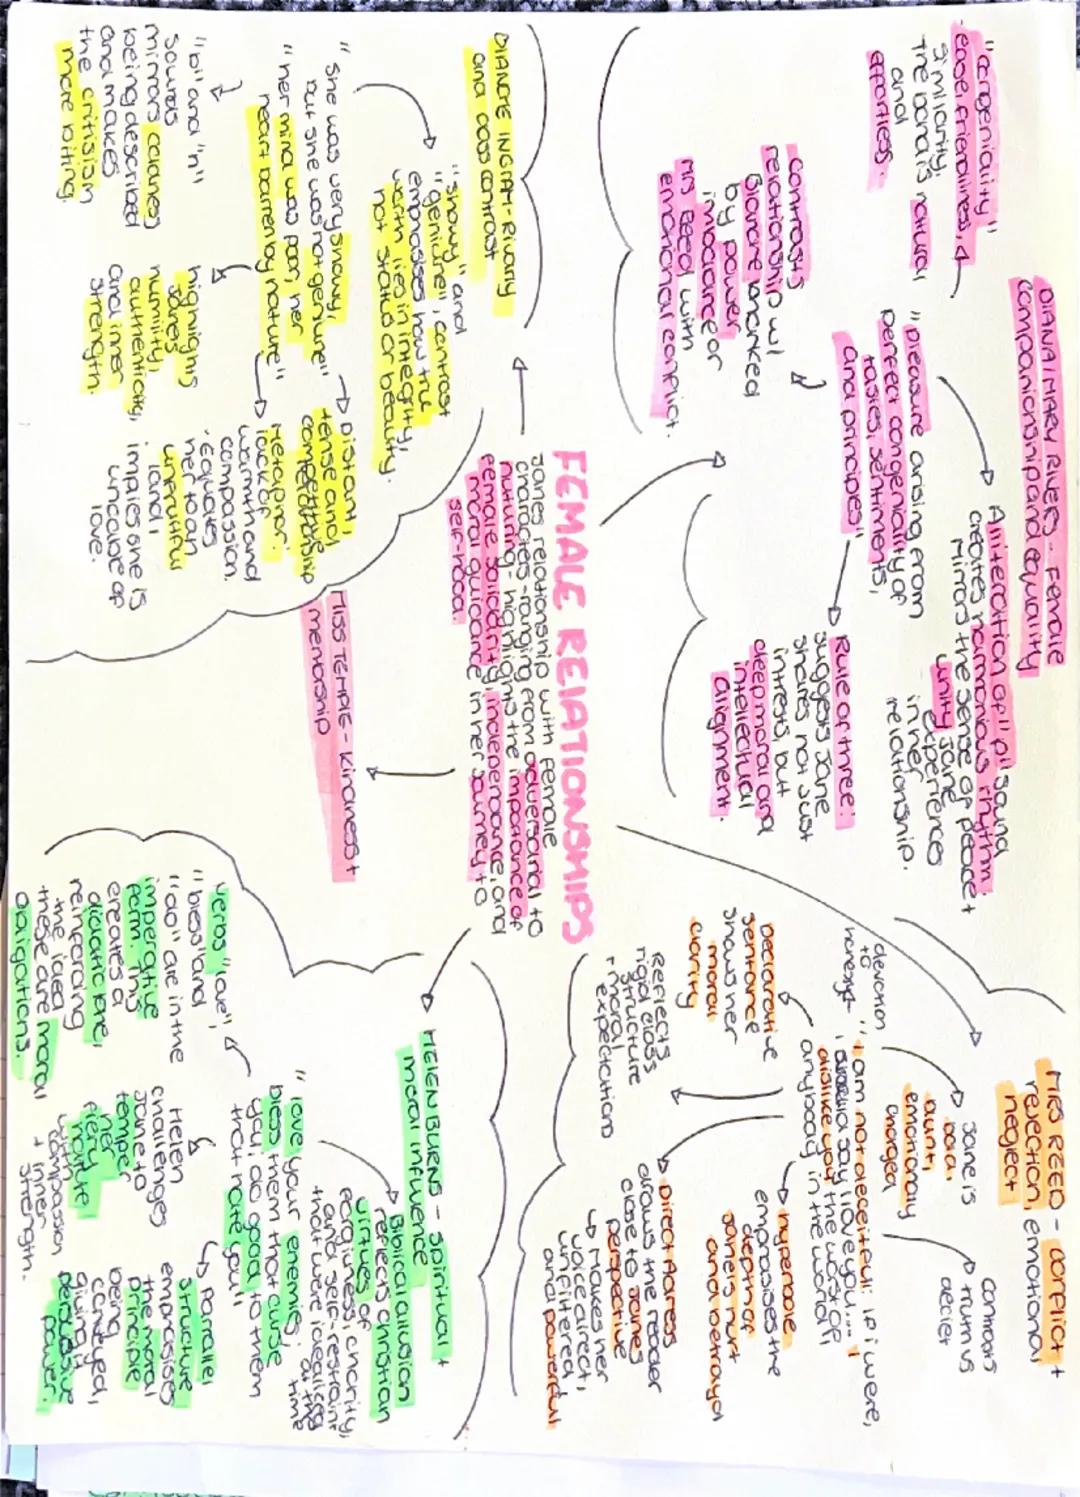 FEMALE RELATIONSHIPS
Janes relationship with female
charactes - ranging from adversarial to
nuturing - highlights the importance of
female solidarity, independance, and
moral guidance in her journey to
self-hood.
DIANA/MARY RIVERS - Female
companionship and equality
"congeniality"
- ease, friendliness,
similarity,
the bond is natural
and
effortless.
Alliteration of "p" sound
creates harmonious rhythm.
Mirrors the sense of peace +
unity Jane
experiences
in her
relationship.
"pleasure arising from
perfect congeniality of
tastes, sentiments,
and principles"
Rule of three:
suggests Jane
shares not just
intrests, but
deep moral and
intellectual
alignment.
contrasts
relationship w/
Blanche marked
by power
imbalance or
Mrs Reed with
emotional conflict.
MRS REED - conflict +
rejection, emotional
neglect
Jane is
bold,
blunt,
emotionally
charged
contrasts
truth vs
deceit
devotion
to
honesty
"I am not deceitful: if i were,
i should say i love you... i
dislike you the worst of
anybody in the world"
Declarative
sentance
shows her
moral
clarity
Reflects
rigid class
structure
+ moral
expectations
hyperbole
emphasises the
depth of
Jane's hurt
and betrayal
Direct Adress
draws the reader
close to Janes
perspective
↳ Makes her
voice direct,
unfiltered,
and powerful
BLANCHE INGRAM - Rivalry
and class contrast
"showy" and
"genuine", contrast
emphasises how true
worth lies in integrity,
not status or beauty.
"She was very showy,
but she was not genuine"
"her mind was poor, her
heart barren by nature"
Distant,
tense and
competitive
Metaphor:
lack of
warmth and
compassion.
Equates
her to an
unfruitful
land,
implies she is
uncabale of
love.
"b" and "n"
sounds
mirrors coldness
being described
and makes
the critisism
more biting.
highlights
Janes
humility,
authenticity,
and inner
strength.
MISS TEMPLE - Kindness +
mentorship
HELEN BURNS - spiritual +
moral influence
Biblical allusion
reflects christian
virtues of
forgiveness, charity,
and self-restraint
that were idealised
at the
time
"love your enemies;
bless them that curse
you; do good to them
that hate you"
verbs "love",
"bless" and
"do" are in the
imperative
form. This
creates a
didactic tone,
reinforcing
the idea
these are moral
obligations.
Helen
challenges
Jane to
temper
her
fiery
nature
with
compassion
+ inner
strength.
Parallel
structure
emphasises
the moral
principle
being
conveyed,
giving it
persuasive
power.